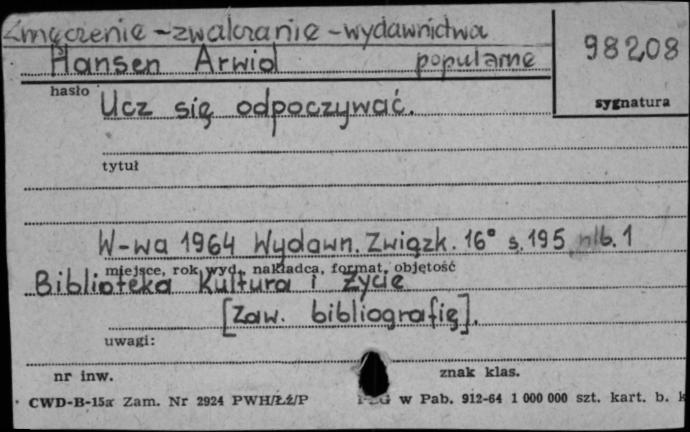 Zmęczenie - zwalczanie - wydawnictwa
Hansen Arwid popularne
98208
hasło
sygnatura
Ucz się odpoczywać.
tytuł
W-wa 1964 Wydawn. Związk. 16° s. 195 nlb. 1
miejsce, rok wyd., nakładca, format, objętość
Biblioteka Kultura i Życie
[Zaw. bibliografię].
uwagi:
nr inw. znak klas.
CWD-B-15a Zam. Nr 2924 PWH/Łź/P w Pab. 912-64 1 000 000 szt. kart. b. k